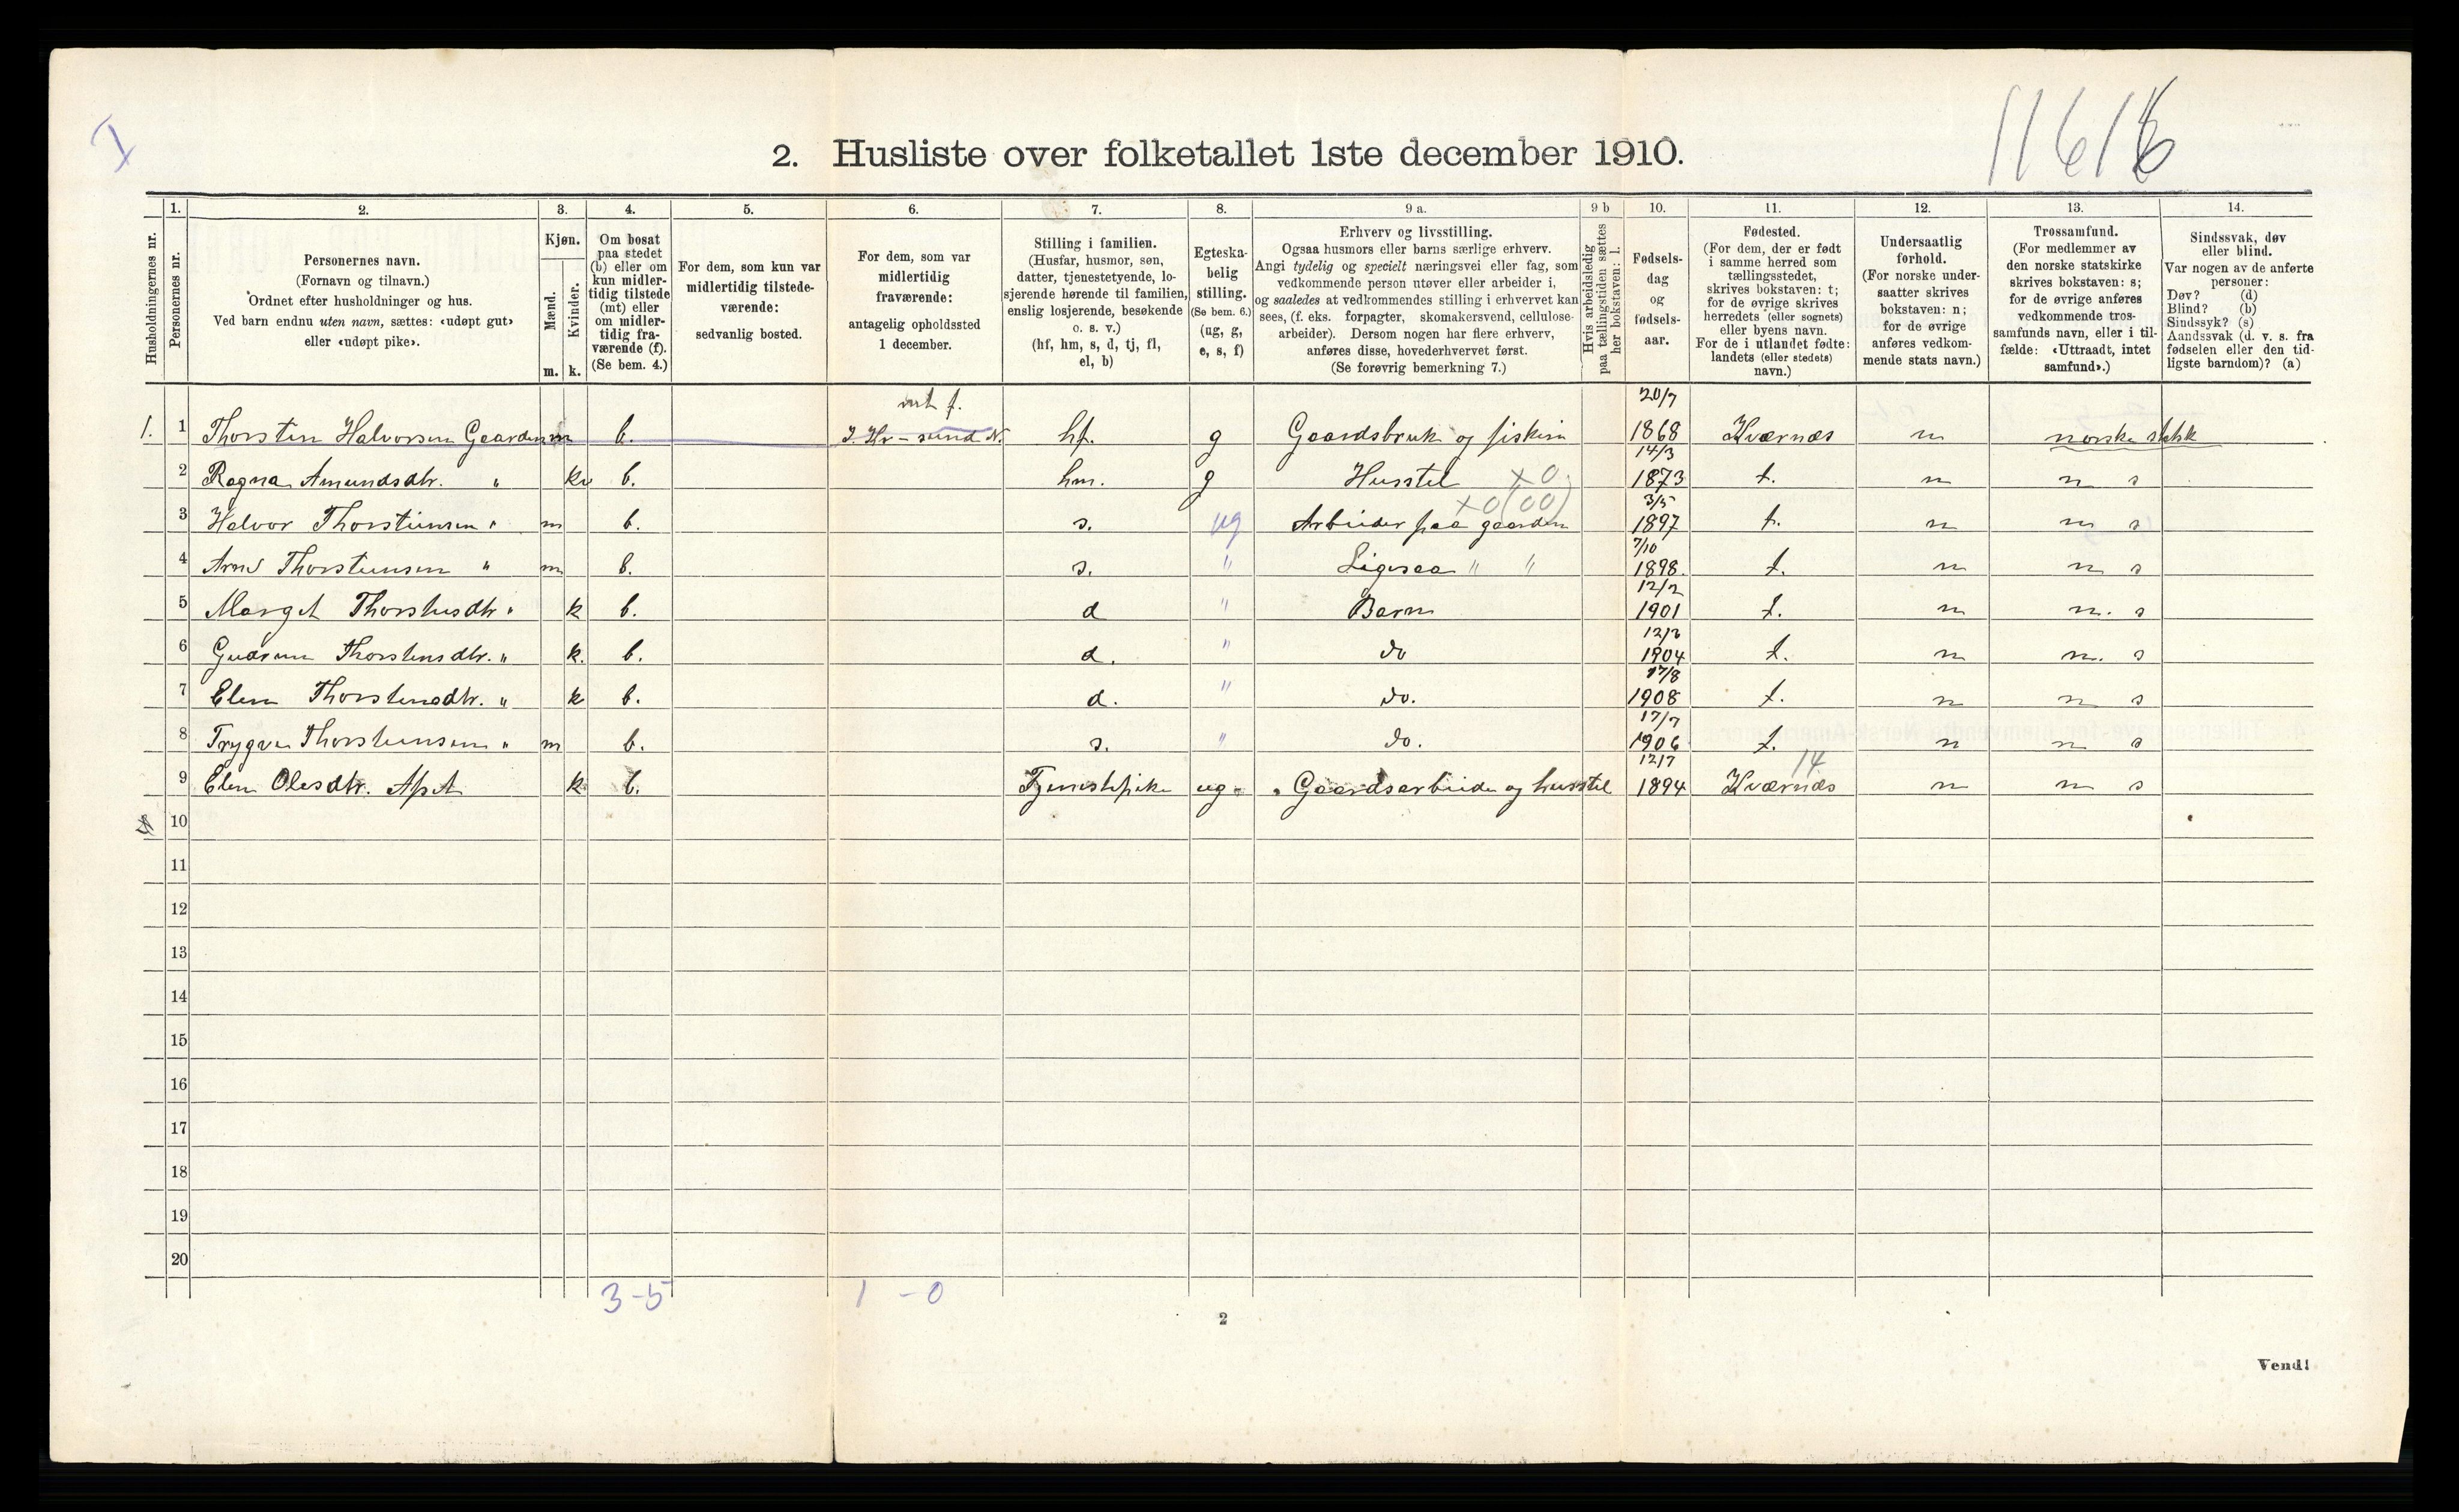 I
11616
2. Husliste over folketallet 1ste december 1910.
Husholdningernes nr.
1. Personernes nr.
2. Personernes navn.
(Fornavn og tilnavn.)
Ordnet efter husholdninger og hus.
Ved barn endnu uten navn, sættes: «udøpt gut»
eller «udøpt pike».
3. Kjøn.
Mænd. m.
Kvinder. k.
4. Om bosat
paa stedet
(b) eller om
kun midler-
tidig tilstede
(mt) eller
om midler-
tidig fra-
værende (f).
(Se bem. 4.)
5. For dem, som kun var
midlertidig tilstede-
værende:
sedvanlig bosted.
6. For dem, som var
midlertidig
fraværende:
antagelig opholdssted
1 december.
7. Stilling i familien.
(Husfar, husmor, søn,
datter, tjenestetyende, lo-
sjerende hørende til familien,
enslig losjerende, besøkende
o. s. v.)
(hf, hm, s, d, tj, fl,
el, b)
8. Egteska-
belig
stilling.
(Se bem. 6.)
(ug, g,
e, s, f)
9 a. Erhverv og livsstilling.
Ogsaa husmors eller barns særlige erhverv.
Angi tydelig og specielt næringsvei eller fag, som
vedkommende person utøver eller arbeider i,
og saaledes at vedkommendes stilling i erhvervet kan
sees, (f. eks. forpagter, skomakersvend, cellulose-
arbeider). Dersom nogen har flere erhverv,
anføres disse, hovederhvervet først.
(Se forøvrig bemerkning 7.)
9 b Hvis arbeidsledig
paa tællingstiden sættes
her bokstaven: l.
10. Fødsels-
dag
og
fødsels-
aar.
11. Fødested.
(For dem, der er født
i samme herred som
tællingsstedet,
skrives bokstaven: t;
for de øvrige skrives
herredets (eller sognets)
eller byens navn.
For de i utlandet fødte:
landets (eller stedets)
navn.)
12. Undersaatlig
forhold.
(For norske under-
saatter skrives
bokstaven: n;
for de øvrige
anføres vedkom-
mende stats navn.)
13. Trossamfund.
(For medlemmer av
den norske statskirke
skrives bokstaven: s;
for de øvrige anføres
vedkommende tros-
samfunds navn, eller i til-
fælde: «Uttraadt, intet
samfund».)
14. Sindssvak, døv
eller blind.
Var nogen av de anførte
personer:
Døv? (d)
Blind? (b)
Sindssyk? (s)
Aandssvak (d. v. s. fra
fødselen eller den tid-
ligste barndom)? (a)
1. 1 Thorsten Halvorsen Gaarden m b. mt f. I. Kr-sund N. hf. g Gaardsbruk og fiskeri 20/7 1868 Kværnes n norske statsk
2 Ragna Amundsdtr. " kv b. hm. g Husstel x 0 14/3 1873 t. n n s
3 Halvor Thorsteinsen " m b. s. ug Arbeider paa gaarden x 0 (00) 3/5 1897 t. n n s
4 Arne Thorsteinsen " m b. s. " Ligesaa " " 7/10 1898. t. n n s
5 Marget Thorstensdtr " k b. d " Barn 12/2 1901 t. n n. s
6 Gudrun Thorstensdtr. " k. b. d. " do 12/3 1904 t. n n. s
7 Elen Thorstensdtr. " k b. d. " do. 17/8 1908 t. n n s
8 Trygve Thorsteinsen " m b. s. " do. 17/7 1906 t. n n s
9 Elen Olesdtr. Apst k b. Tjenestepike ug. Gaardsarbeide og husstel 12/7 1894 Kværnes 14 n n s
10
11
12
13
14
15
16
17
18
19
20
3-5 1-0
2
Vend!